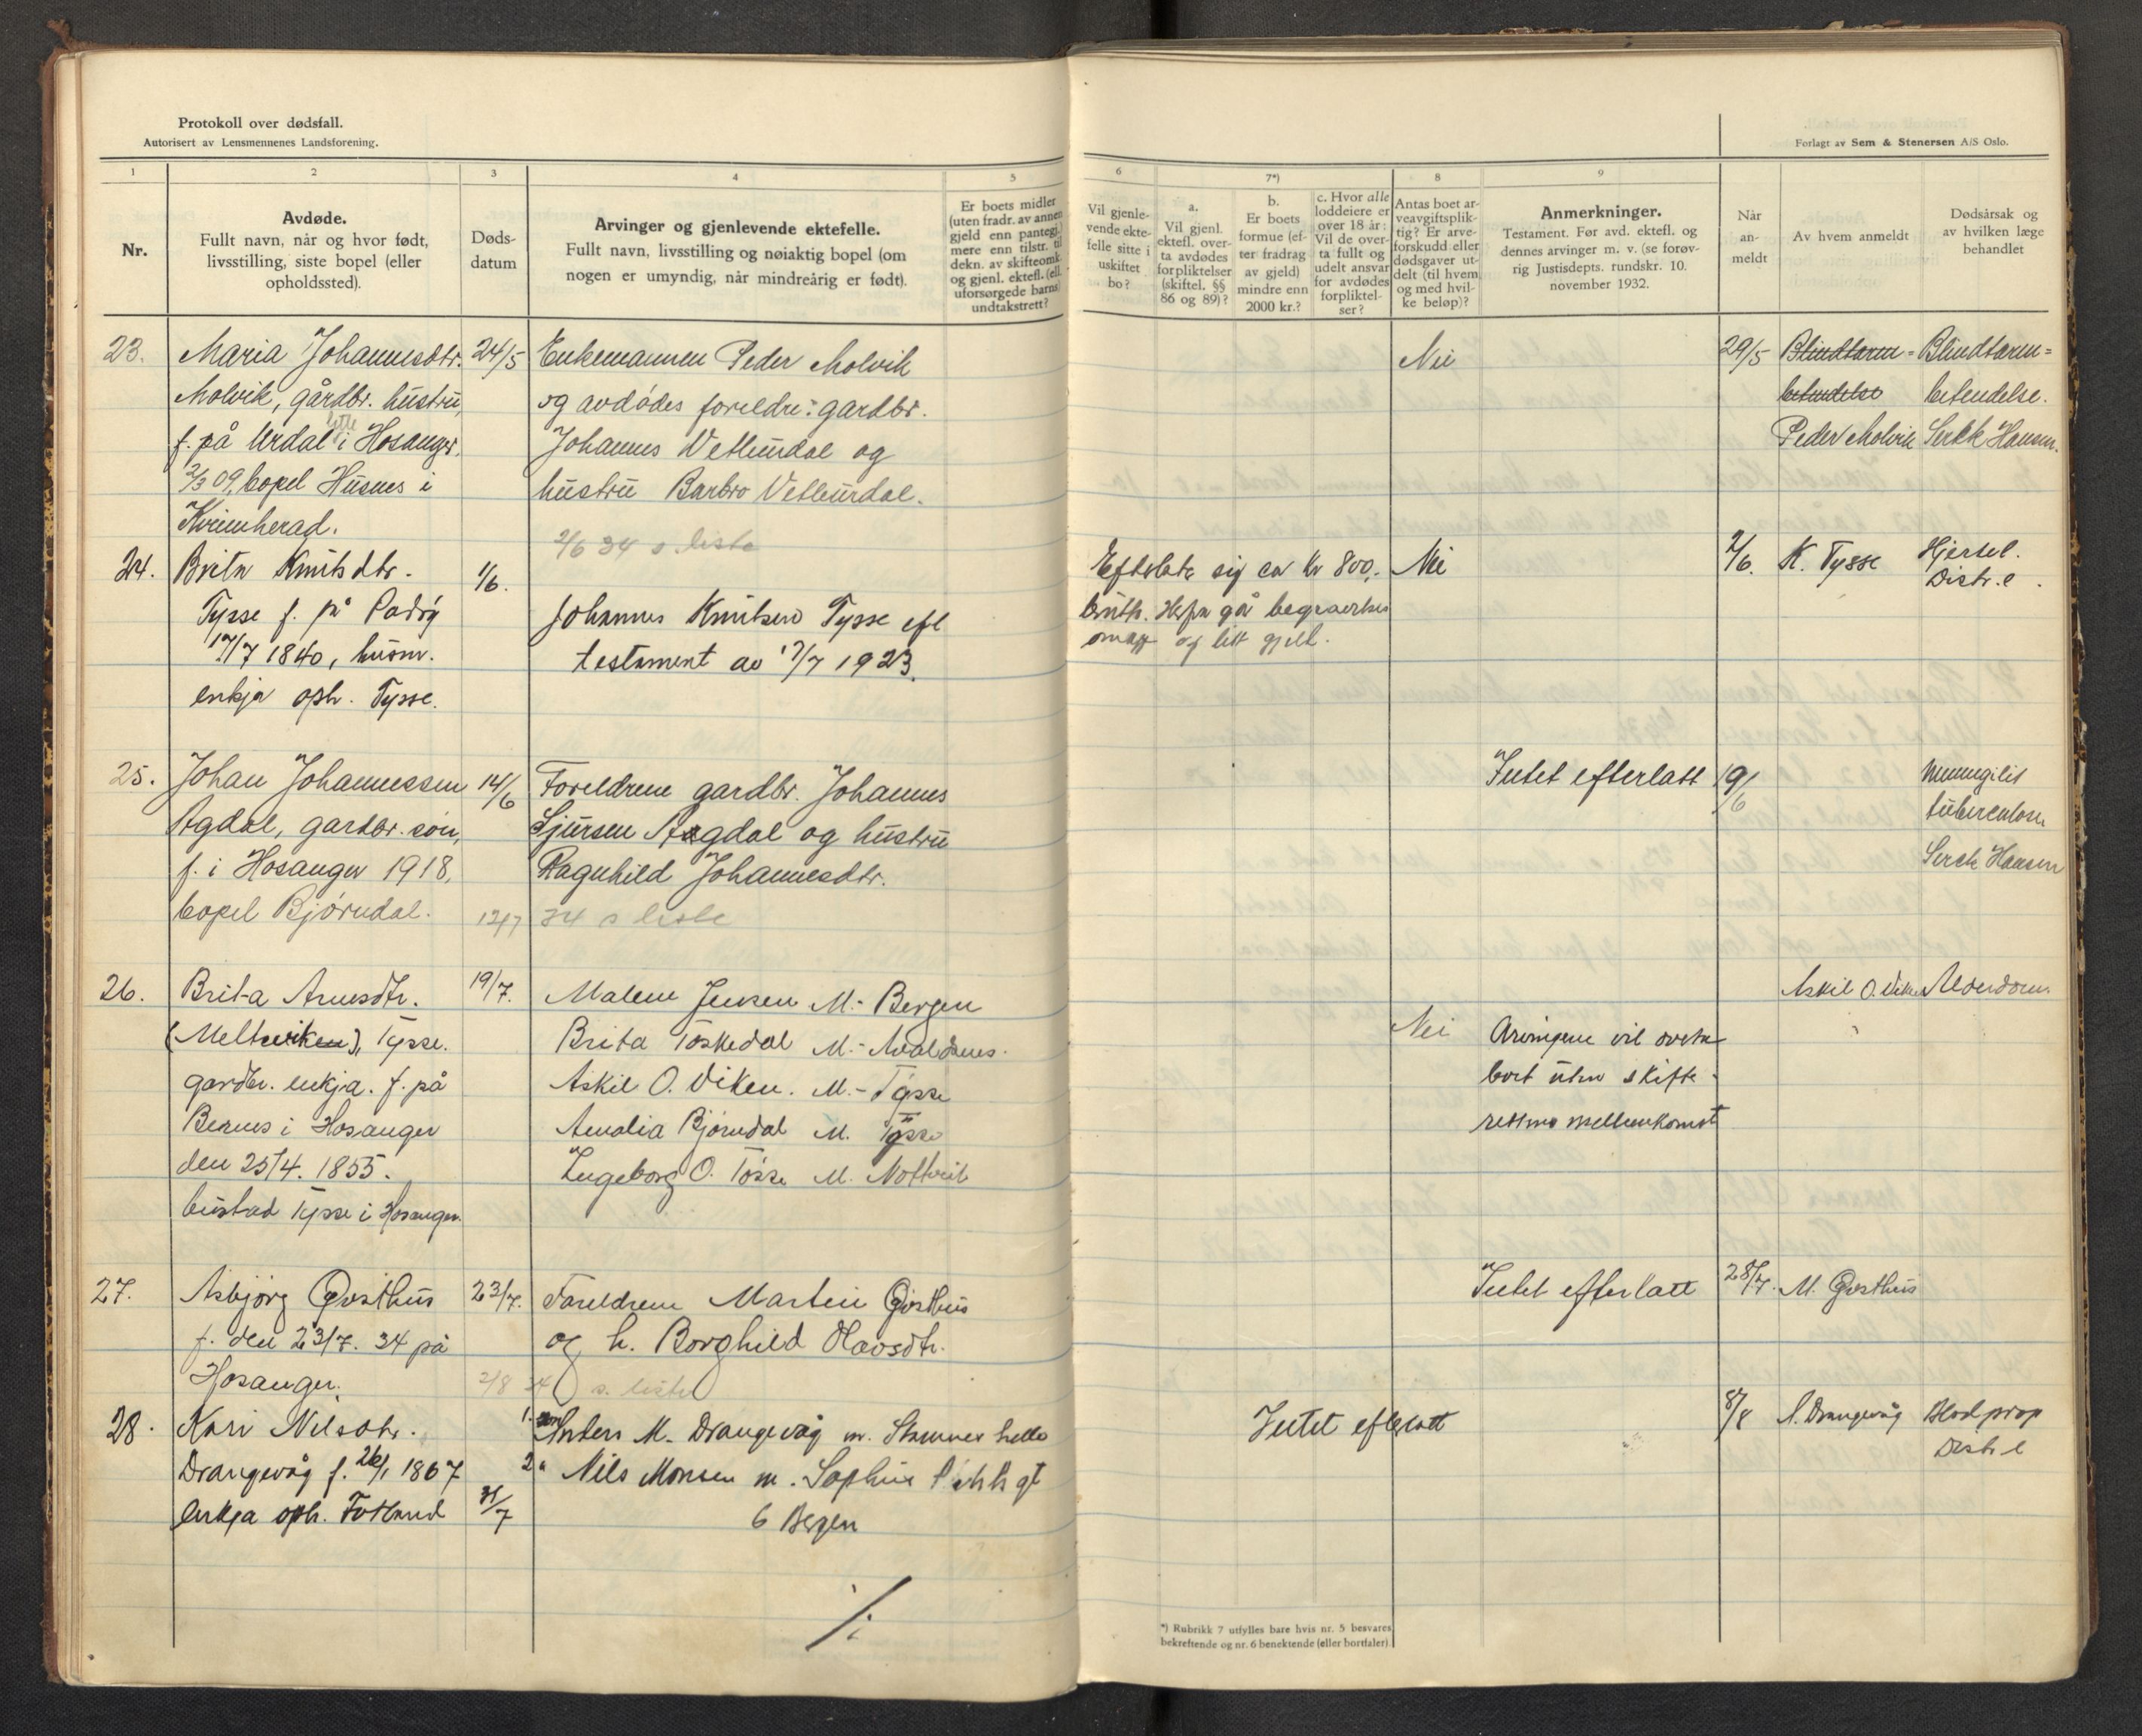 Protokoll over dødsfall.
Autorisert av Lensmennenes Landsforening.
1
2
3
4
5
Nr.
Avdøde.
Fullt navn, når og hvor født,
livsstilling, siste bopel (eller
opholdssted).
Døds-
datum
Arvinger og gjenlevende ektefelle.
Fullt navn, livsstilling og nøiaktig bopel (om
nogen er umyndig, når mindreårig er født).
Er boets midler
(uten fradr. av annen
gjeld enn pantegj.)
mere enn tilstr. til
dekn. av skifteomk.
og gjenl. ektef. (ell.
uforsørgede barns)
undtakstrett?
23.
Maria Johannesdtr.
Molvik, gårdbr. hustru,
f. på Urdal litle i Hosanger,
2/3 09, bopel Husnes i
Kvinnherad.
24/5
Enkemannen Peder Molvik
og avdødes foreldre: gardbr.
Johannes Vetleurdal og
hustru Barbro Vetleurdal.
2/6 34 s liste
24.
Brita Knutsdtr.
Tysse f. på Padøy
17/7 1840, husm.
enkja oph. Tysse.
1/6.
Johannes Knutsen Tysse efl
testament av 17/7 1923.
25.
Johan Johannessen
Agdal, gardbr. søn,
f. i Hosanger 1918,
bopel Bjørndal.
14/6
Foreldrene gardbr. Johannes
Sjursen Aagdal og hustru
Ragnhild Johannesdtr.
12/7 34 s liste
26.
Brita Arnesdtr.
(Meltveiken), Tysse.
gardbr. enkja. f. på
Bernes i Hosanger
den 25/4. 1855.
bustad Tysse i Hosanger.
19/7.
Malene Jensen M.- Bergen
Brita Toskedal M.- Avaldsnes.
Askil O. Viken. M.- Tysse
Amalia Bjørndal M. Tysse
Ingeborg O. Tosse M. Nottveit
27.
Asbjørg Qvsthus
f. den 23/7. 34 på
Hosanger.
23/7.
Foreldrene Martin Qvisthus
og h. Borghild Olavsdtr.
2/8 34 s. liste
28.
Kari Nilsdtr.
Drangevåg f. 26/1 1867
enkja oph. Fotland
31/7
1. søn Anders M. Drangevåg m. Stamneshella
2 " Nils Monsen m. Sophus gt
6 Bergen
/:
Forlagt av Sem & Stenersen A/S Oslo.
6
7*)
8
9
Vil gjenle-
vende ekte-
felle sitte i
uskiftet
bo?
a.
Vil gjenl.
ektefl. over-
ta avdødes
forpliktelser
(skiftel. §§
86 og 89)?
b.
Er boets
formue (ef-
ter fradrag
av gjeld)
mindre enn
2000 kr.?
c. Hvor alle
loddeiere er
over 18 år:
Vil de over-
ta fullt og
udelt ansvar
for avdødes
forpliktel-
ser?
Antas boet ar-
veavgiftsplik-
tig? Er arve-
forskudd eller
dødsgaver ut-
delt (til hvem
og med hvil-
ke beløp)?
Anmerkninger.
Testament. Før avd. ektefl. og
dennes arvinger m. v. (se forøv-
rig Justisdepts. rundskr. 10.
november 1932.
Når
an-
meldt
Av hvem anmeldt
Dødsårsak og
av hvilken læge
behandlet
Nei
29/5
Blindtarm=
betendelse
Peder Molvik
Blindtarm=
betendelse.
Serkk Hansen.
Efterlate sig ca kr 800,-
brutto. Herfra går begravelses
omkg og litt gjeld.
Nei
2/6.
K. Tysse
Hjertel.
Distr.l.
Intet efterlatt
19/6
Meningitis
tuberculosa
Serck Hansen
Nei
Arvingene vil overta
boet uten skifte-
rettens mellemkomst
Askil O. Viken
Alderdom.
Intet efterlatt
28/7.
M. Qvsthus
Intet efterlatt
8/8
A. Drangevåg
Blodprop
Distr.l
*) Rubrikk 7 utfylles bare hvis nr. 5 besvares
bekreftende og nr. 6 benektende (eller bortfaler).